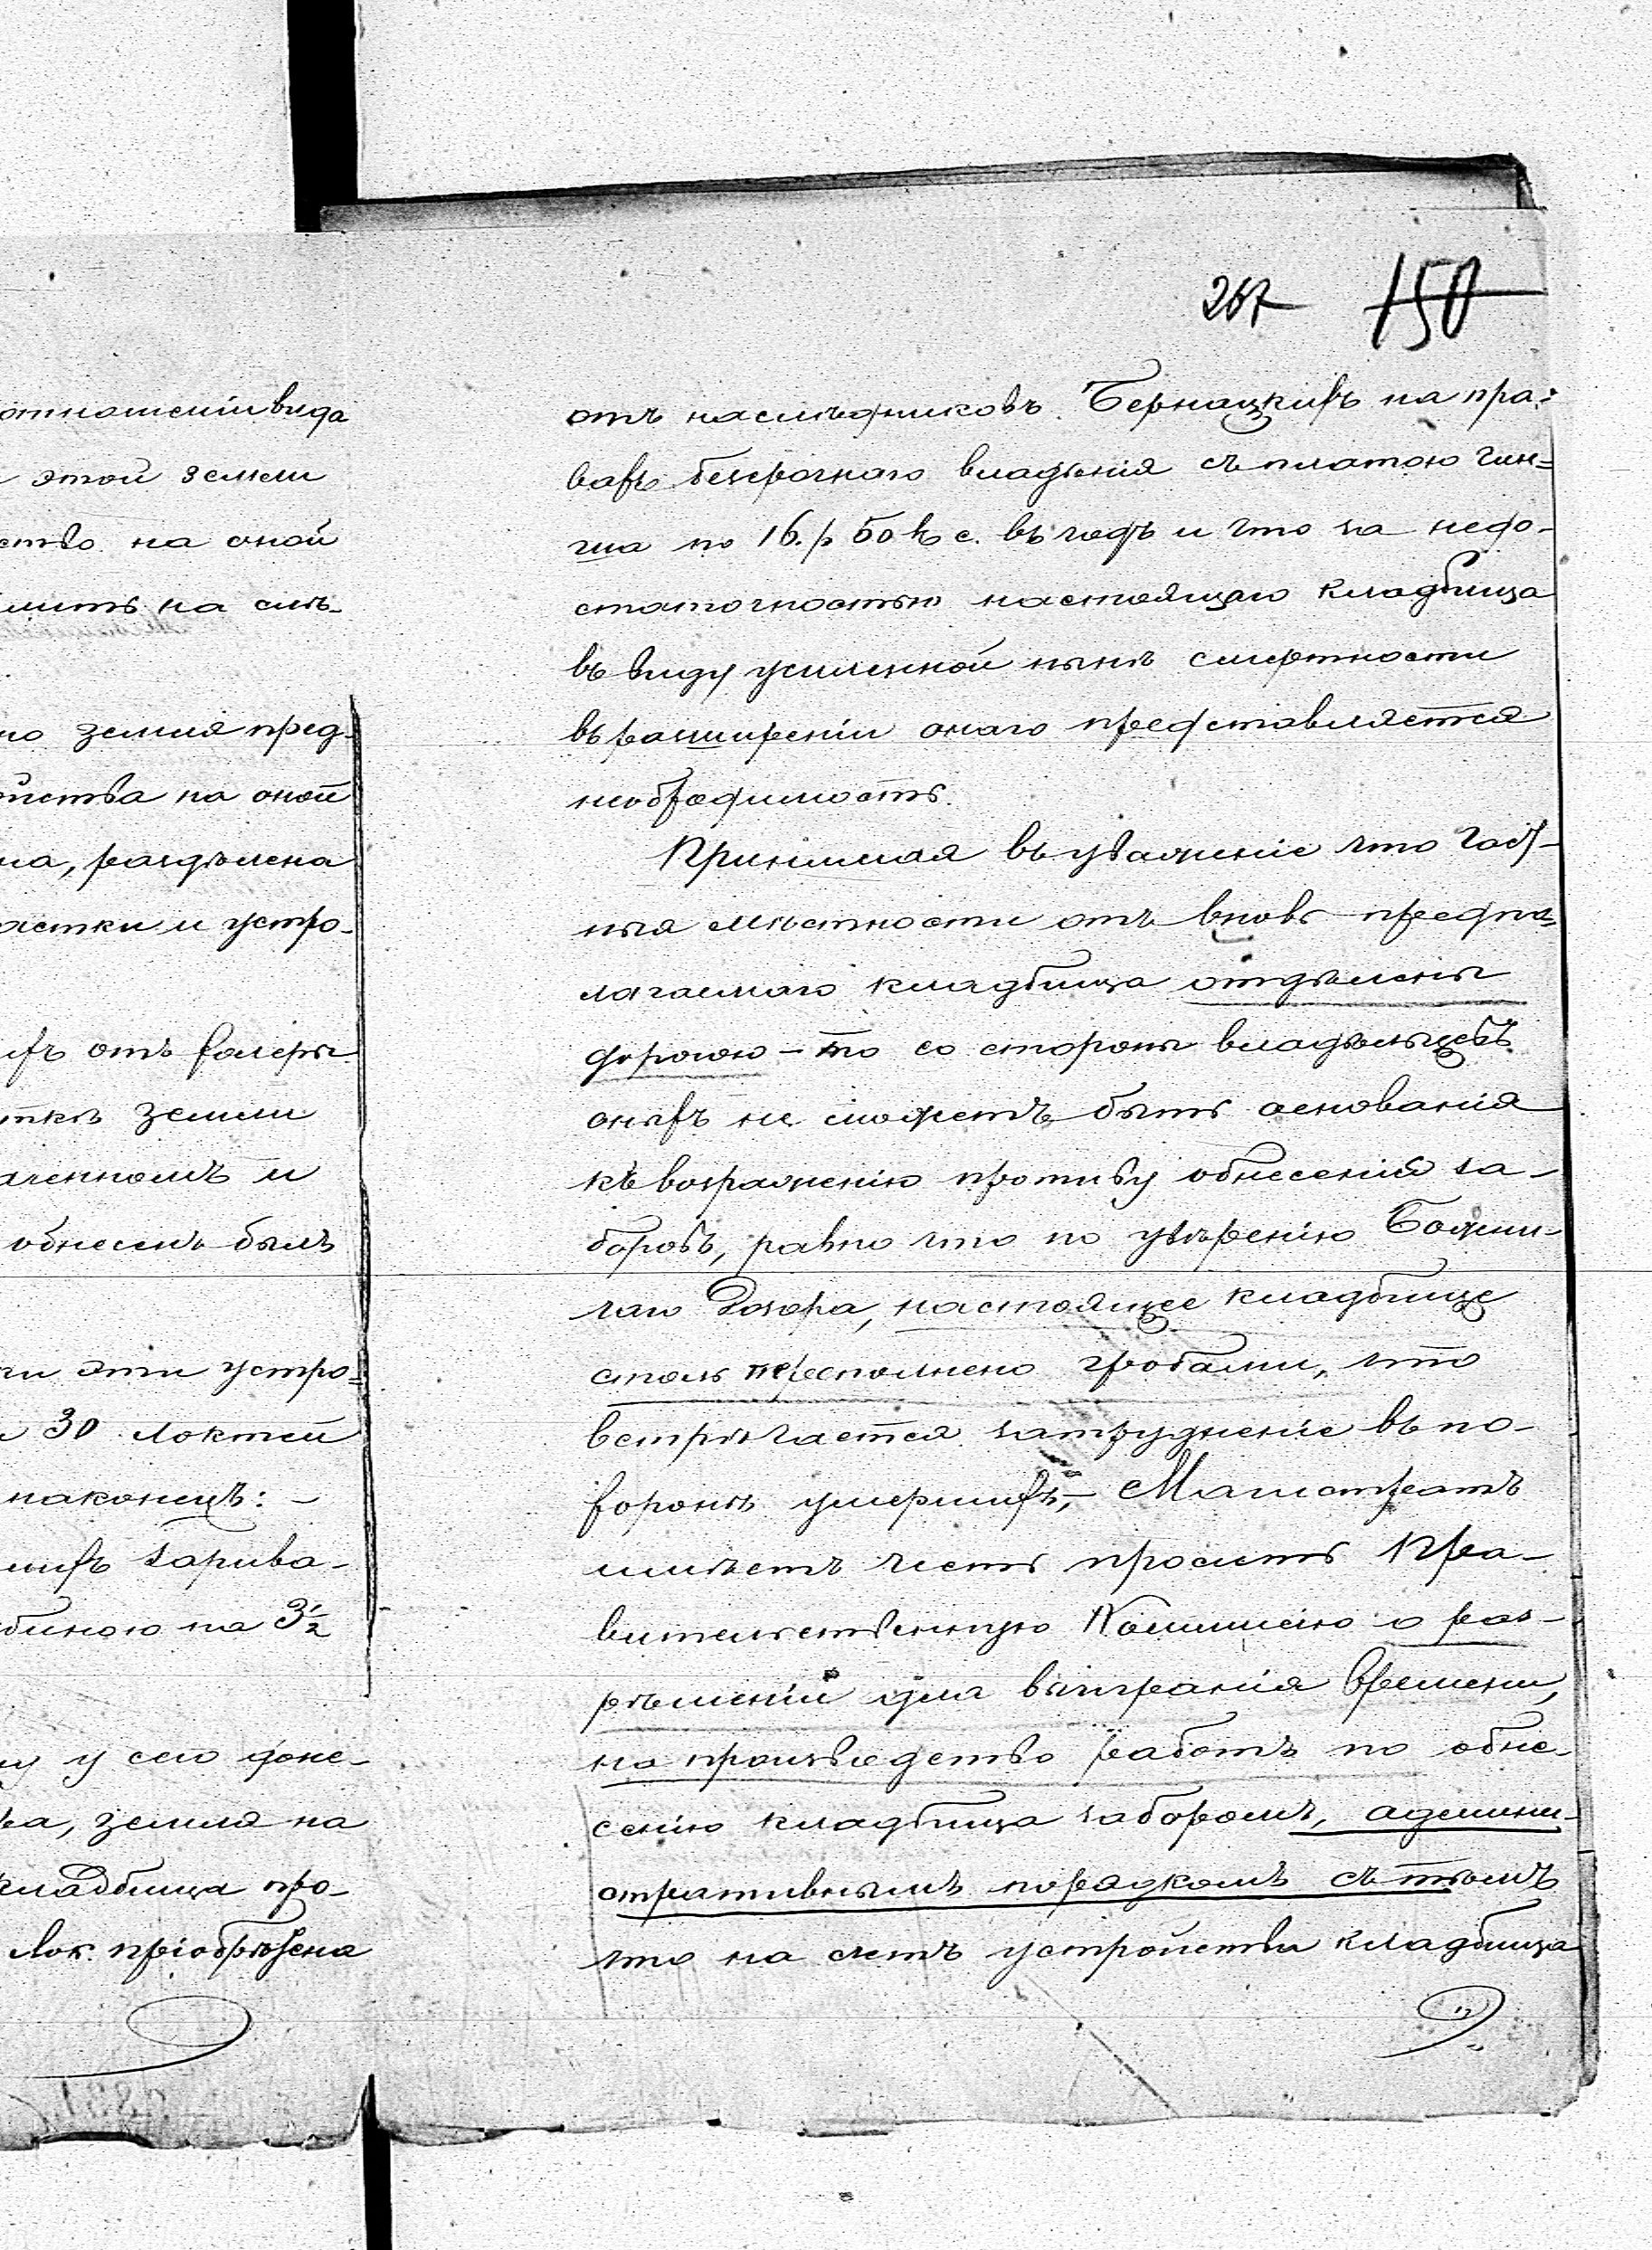 267 150
отношеніи вида
этой земли
ство на оной
на смѣ-
земля пред-
ойства на оной
на, раздѣлена
астки и устро-
отъ холеры
земли
аченномъ и
обнесенъ былъ
эти устро-
30 локтей
наконецъ: –
зарива-
биною на 3½
у сего доне-
ва, земля на
кладбища про-
Лок. пріобрѣтена
отъ наслѣдниковъ Бернацкихъ на пра-
вахъ безсрочнаго владѣнія съ платою чин-
ша по 16 р 50 к с. въ годъ и что за недо-
статочностью настоящаго кладбища
въ виду усиленной нынѣ смертности
въ расширеніи онаго представляется
необходимость.
Принимая въ уваженіе что част-
ныя мѣстности отъ вновь предпо-
лагаемаго кладбища отдѣлены
дорогою – то со стороны владѣльцевъ
оныхъ не можетъ быть основанія
къ возраженію противу обнесенія за-
боровъ, равно что по увѣренію Божни-
чаго Дозора, настоящее кладбище
столь переполнено гробами, что
встрѣчается затрудненіе въ по-
хоронѣ умершихъ, – Магистратъ
имѣетъ честь просить Пра-
вительственную Коммисію о раз-
рѣшеніи для выигранія времени,
на производство работъ по обне-
сенію кладбища заборомъ, админи-
стративнымъ порядкомъ съ тѣмъ
что на счетъ устройства кладбища